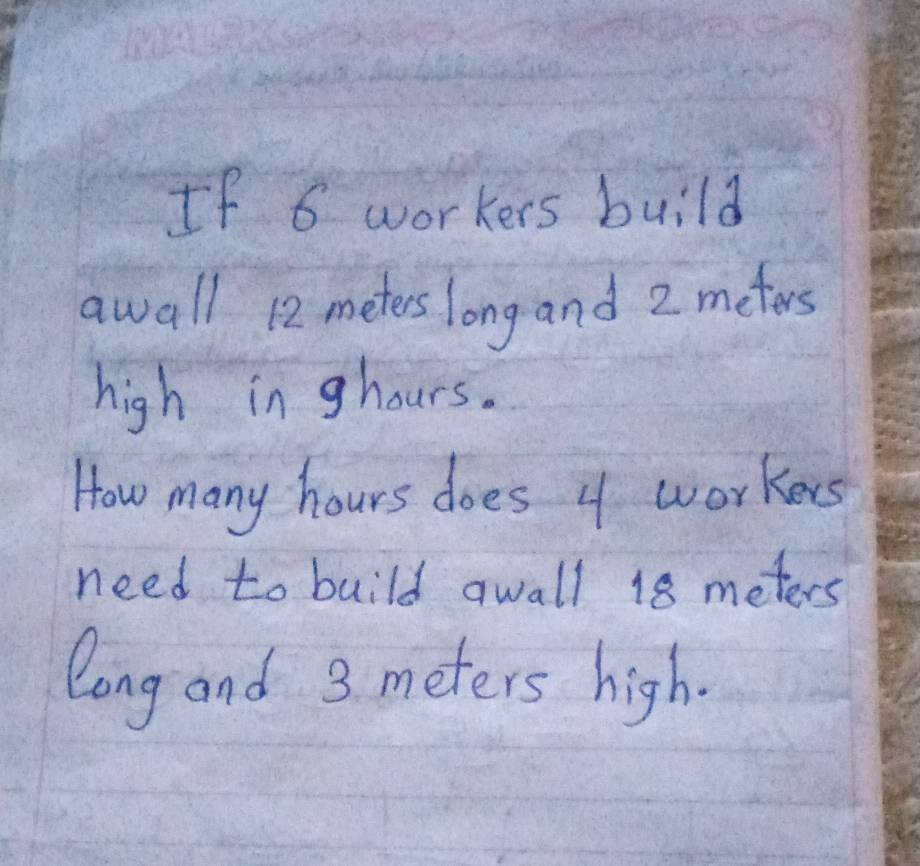 If 6 workers build
awall 12 meters long and 2 meters
high in 9 hours.
How many hours does 4 workers
need to build awall 18 meters
long and 3 meters high.